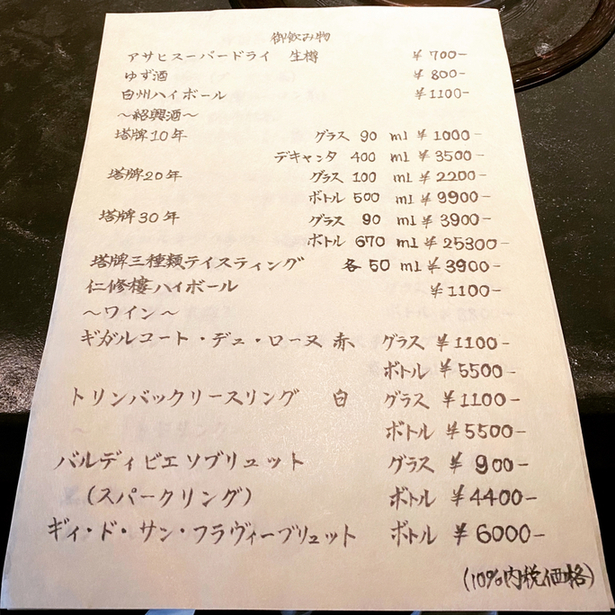 御飲み物
アサヒスーパードライ 生樽 ¥700-
ゆず酒 ¥800-
白州ハイボール ¥1100-
〜紹興酒〜
塔牌10年 グラス 90 ml ¥1000-
デキャンタ 400 ml ¥3500-
塔牌20年 グラス 100 ml ¥2200-
ボトル 500 ml ¥9900-
塔牌30年 グラス 90 ml ¥3900-
ボトル 670 ml ¥25300-
塔牌三種類テイスティング 各50 ml ¥3900-
仁修樓ハイボール ¥1100-
〜ワイン〜
ギガルコート・デュ・ローヌ 赤 グラス ¥1100-
ボトル ¥5500-
トリンバックリースリング 白 グラス ¥1100-
ボトル ¥5500-
バルディビエソブリュット グラス ¥900-
(スパークリング) ボトル ¥4400-
ギィ・ド・サン・フラヴィーブリュット ボトル ¥6000-
(10%内税価格)